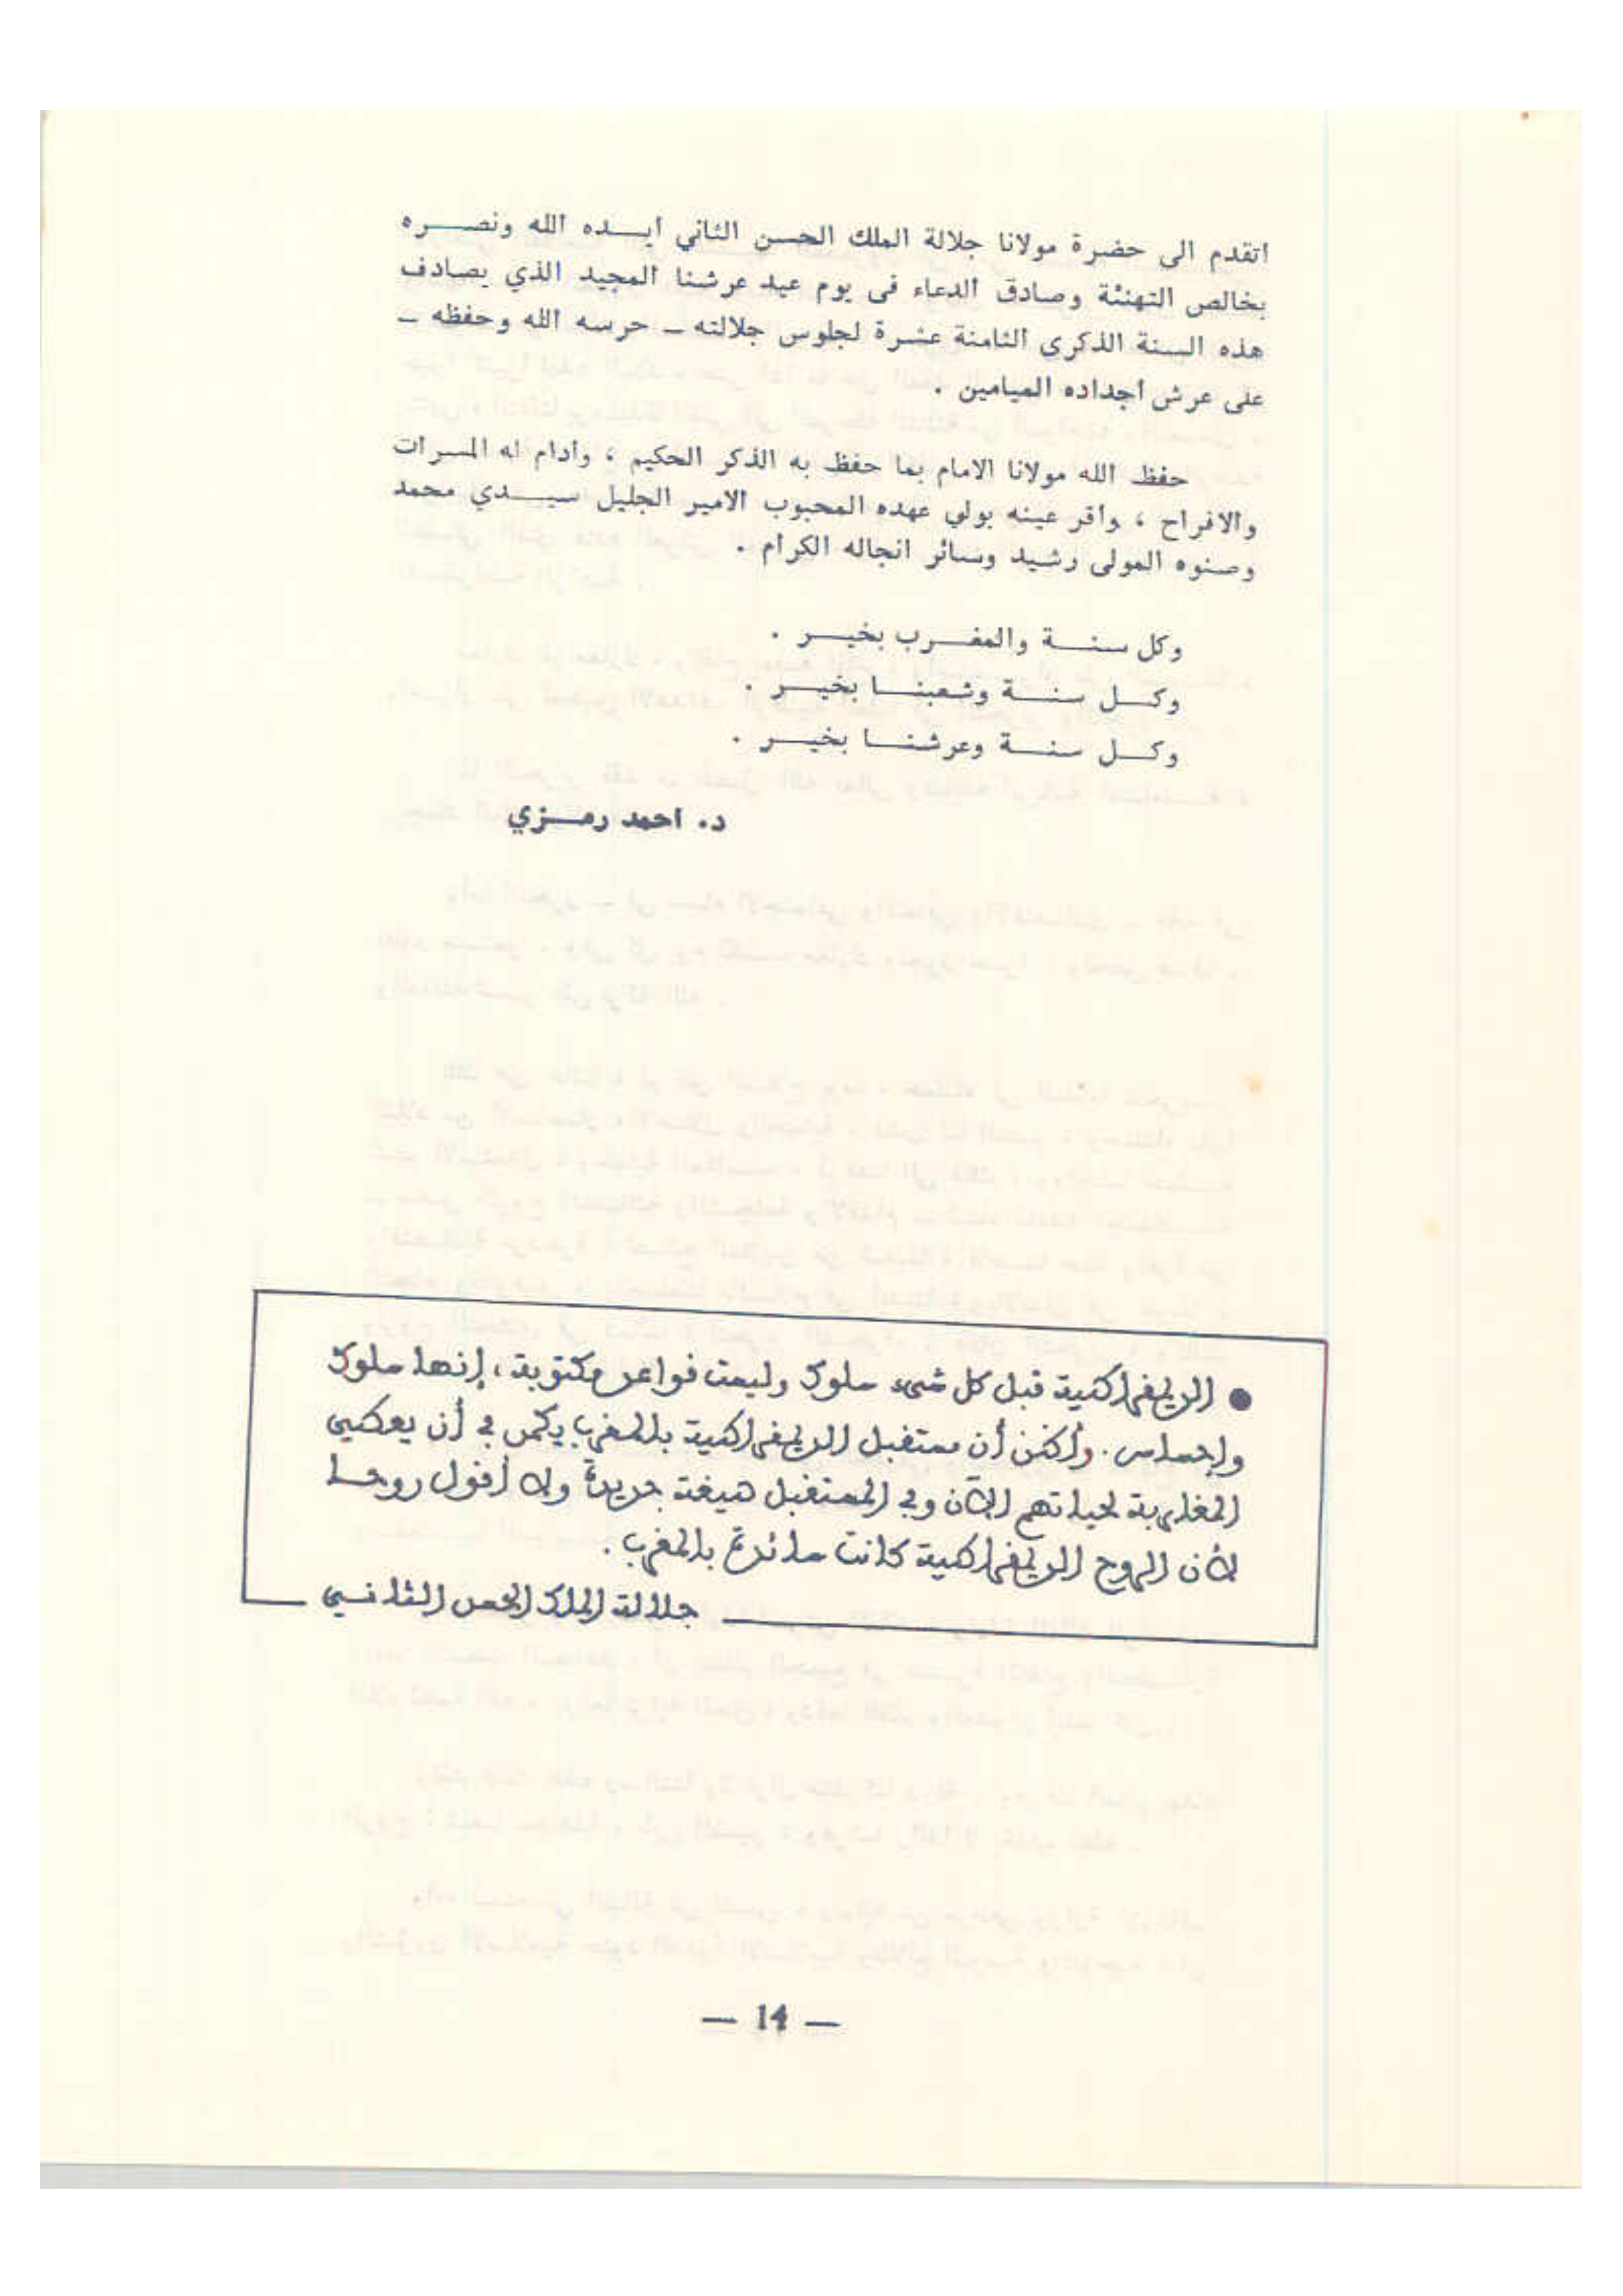 اتقدم الى حضرة مولانا جلالة الملك الحسن الثاني أيـــده الله ونصـــره
بخالص التهنئة وصادق الدعاء فى يوم عيد عرشنا المجيد الذي يصادف
هذه السنة الذكرى الثامنة عشرة لجلوس جلالته ــ حرسه الله وحفظه ــ
على عرش أجداده الميامين .
حفظ الله مولانا الامام بما حفظ به الذكر الحكيم ، وأدام له المسرات
والافراح ، وأقر عينه بولي عهده المحبوب الامير الجليل سيـــدي محمد
وصنوه المولى رشيد وسائر انجاله الكرام .
وكل سنـــة والمغـــرب بخيـــر .
وكـــل سنـــة وشعبنـــا بخيـــر .
وكـــل سنـــة وعرشنـــا بخيـــر .
د. احمد رمـــزي
● الديمقراطية قبل كل شيء سلوك وليست قواعد مكتوبة، إنها سلوك
وإحساس. وأظن أن مستقبل الديمقراطية بالمغرب يكمن في أن يعطي
المغاربة لحياتهم الآن وفي المستقبل صيغة جديدة ولا أقول روحا
لأن الروح الديمقراطية كانت سائدة بالمغرب.
جلالة الملك الحسن الثاني
— 14 —